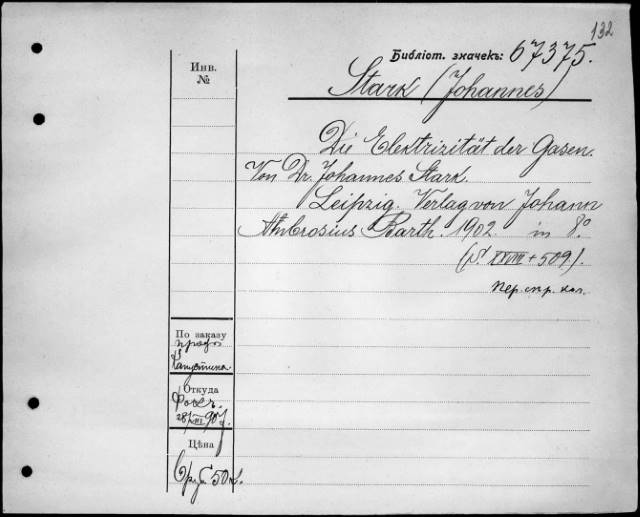 132
Библіот. значекъ: 67375.
Инв.
№
Stark (Johannes)
Die Elektrizität der Gasen.
Von Dr. Johannes Stark.
Leipzig. Verlag von Johann
Ambrosius Barth. 1902. in 8.°
(S. XXVIII + 509).
пер. кол.
По заказу
проф.
Откуда
Фокъ.
28/VIII 907.
Цѣна
6 руб 50 к.